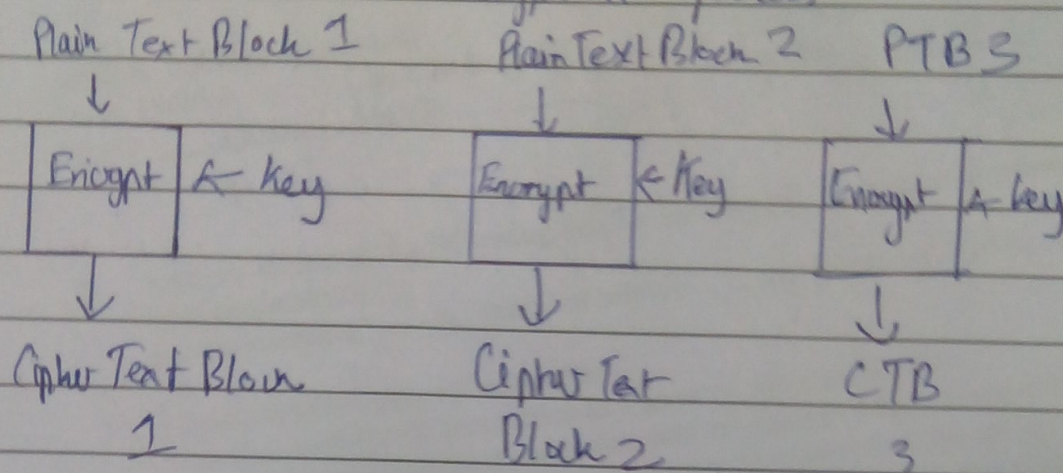 Plain Text Block 1
Plain Text Block 2
PTB 3
Encrypt
Key
Encrypt
Key
Encrypt
key
Cipher Text Block
1
Cipher Text
Block 2
CTB
3